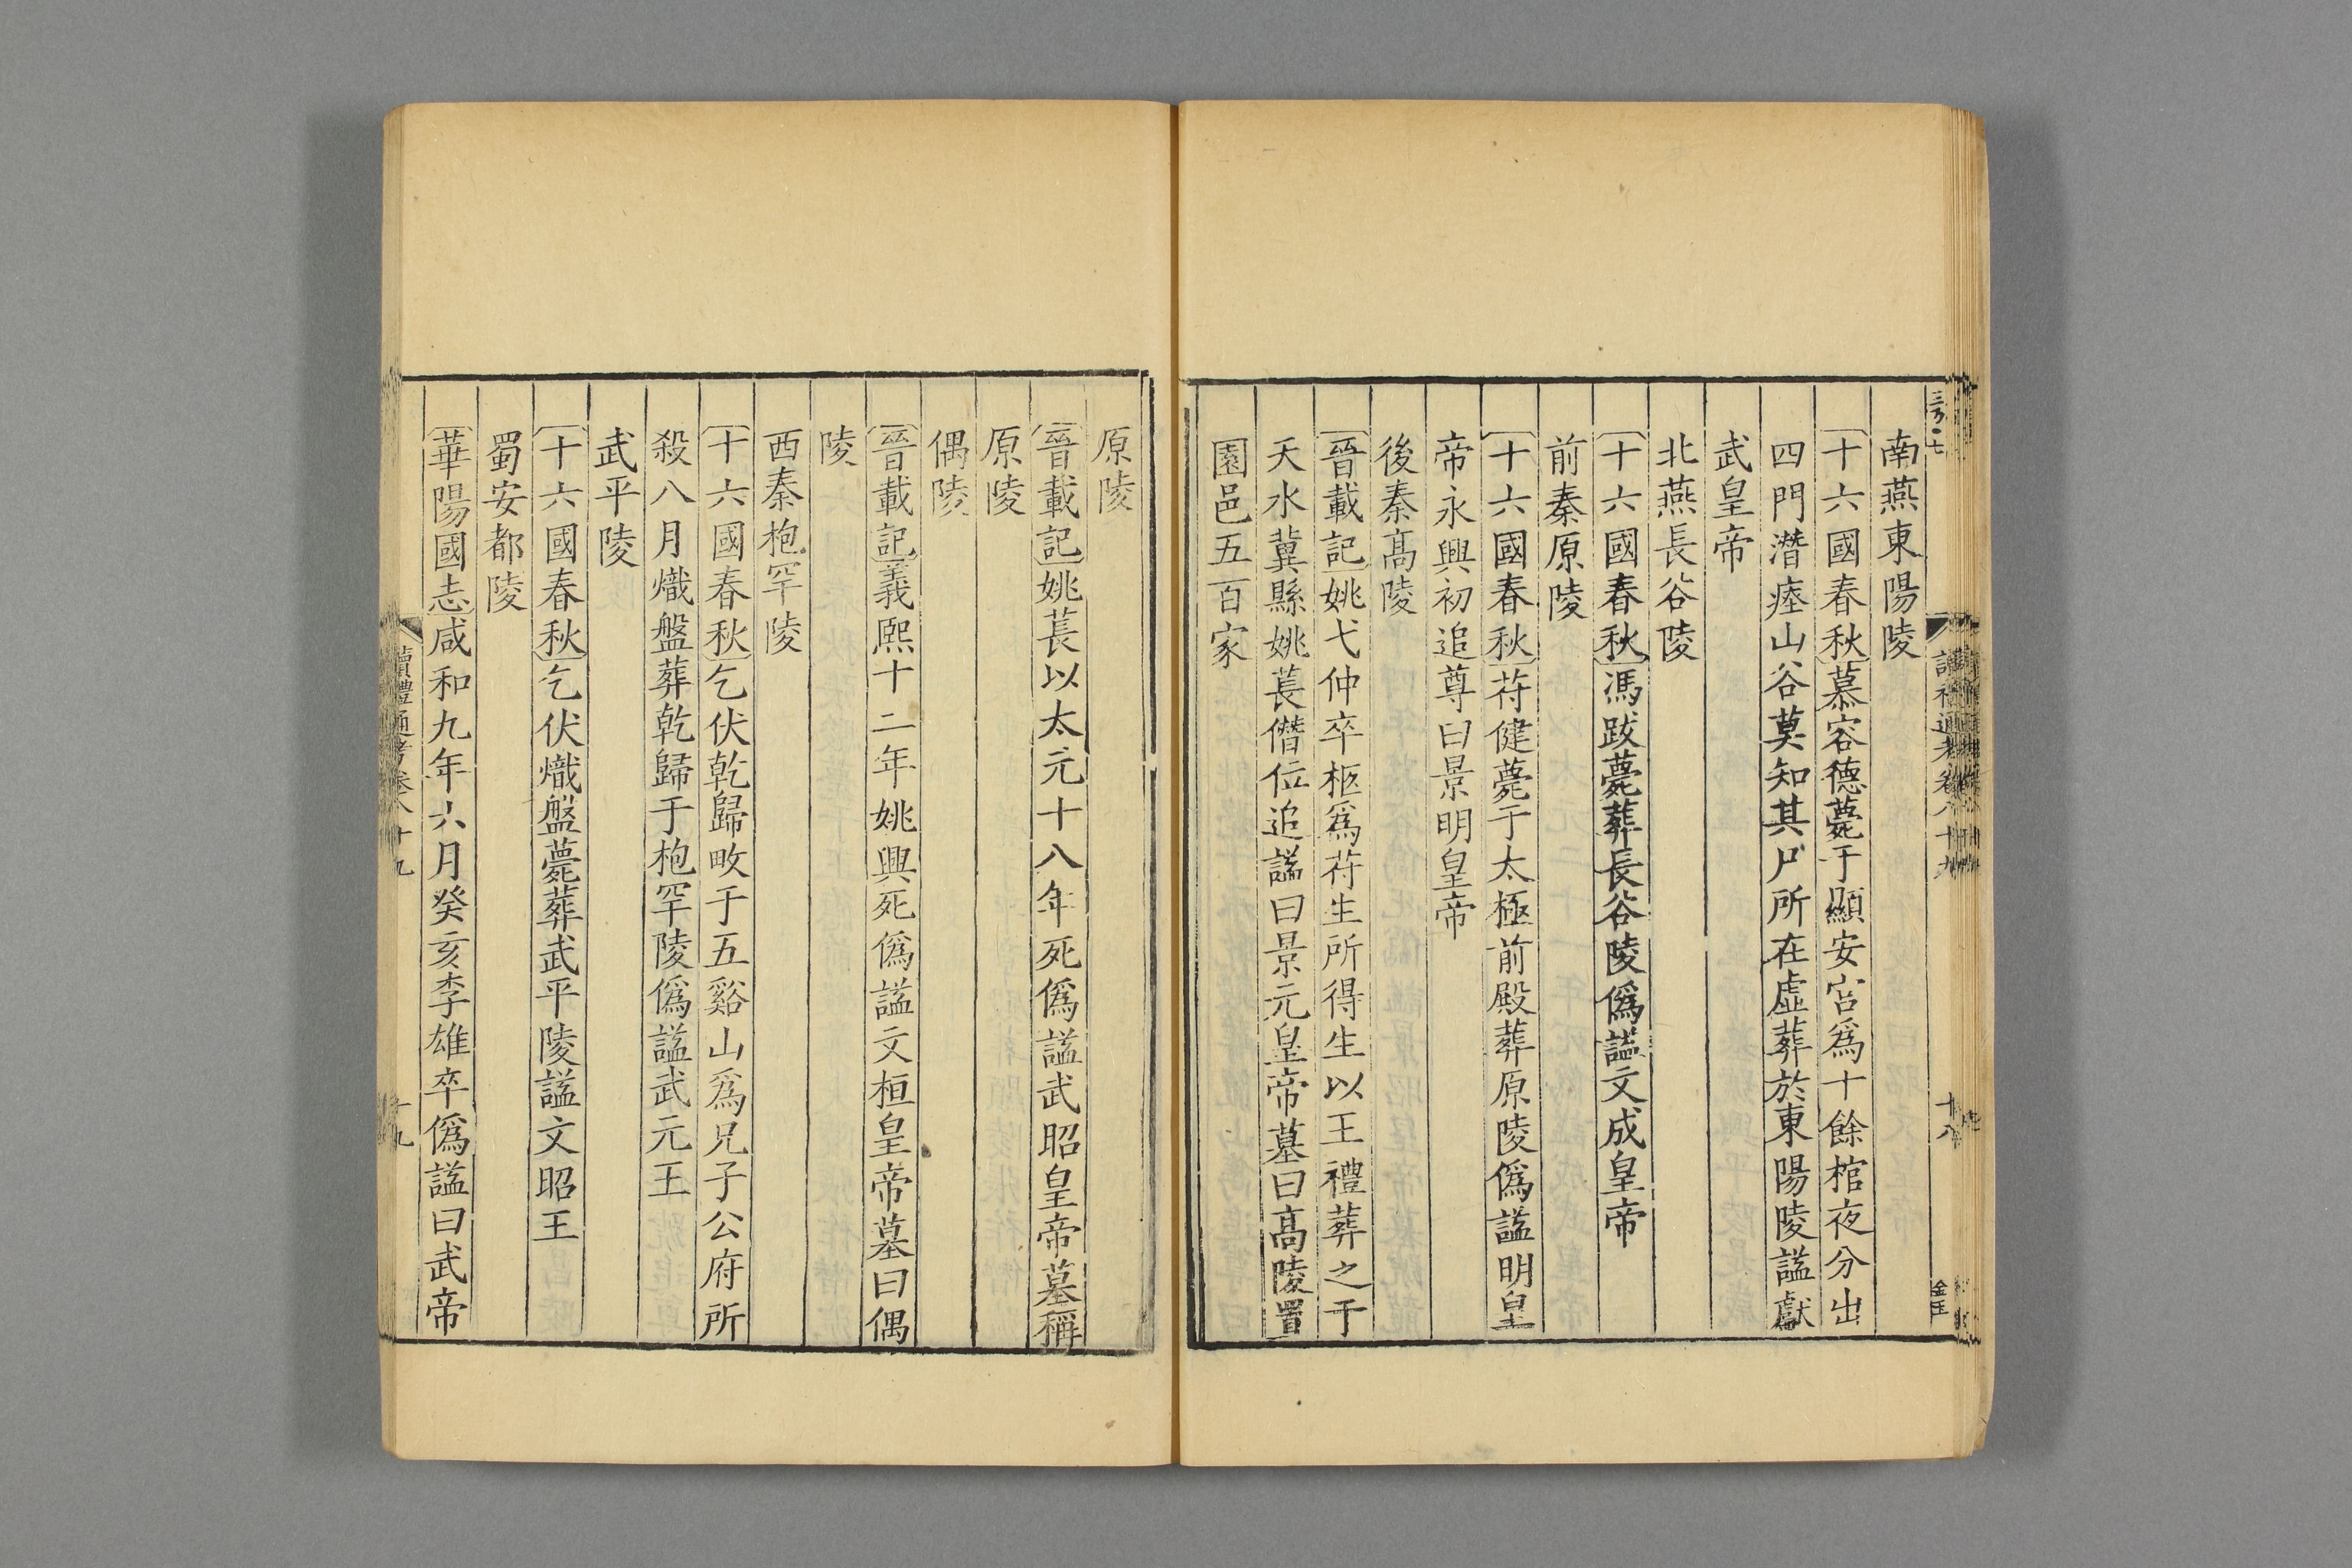 南燕東陽陵
十六國春秋慕容德薨于顯安宮爲十餘棺夜分出
四門潛瘞山谷莫知其尸所在虛葬於東陽陵謚獻
武皇帝
北燕長谷陵
十六國春秋馮跋薨葬長谷陵僞謚文成皇帝
前秦原陵
十六國春秋苻健薨于太極前殿葬原陵僞謚明皇
帝永興初追尊曰景明皇帝
後秦高陵
晉載記姚弋仲卒柩爲苻生所得生以王禮葬之于
天水冀縣姚萇僭位追謚曰景元皇帝墓曰高陵置
園邑五百家
原陵
晉載記姚萇以太元十八年死僞謚武昭皇帝墓稱
原陵
偶陵
晉載記義熙十二年姚興死僞謚文桓皇帝墓曰偶
陵
西秦枹罕陵
十六國春秋乞伏乾歸畋于五谿山爲兄子公府所
殺八月熾盤葬乾歸于枹罕陵僞謚武元王
武平陵
十六國春秋乞伏熾盤薨葬武平陵謚文昭王
蜀安都陵
華陽國志咸和九年六月癸亥李雄卒僞謚曰武帝
讀禮通考卷八十九